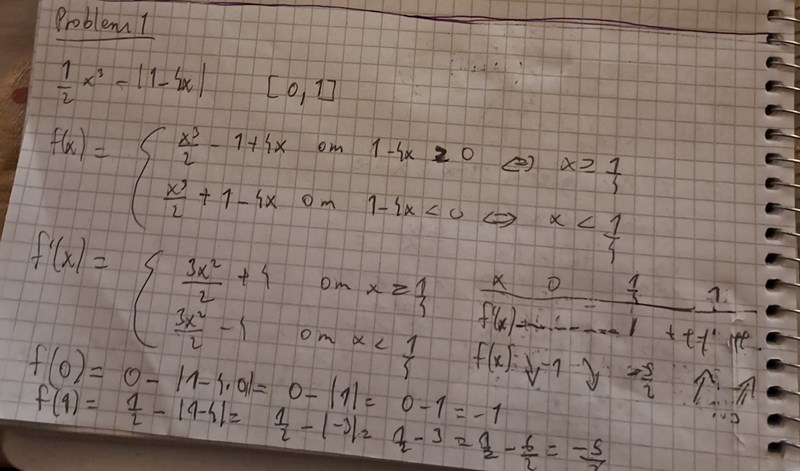 Problem 1
1/2 x³ - |1-4x| [0,1]
f(x) = { x³/2 - 1+4x om 1-4x ≥ 0 ⇔ x ≥ 1/4
x³/2 + 1-4x om 1-4x < 0 ⇔ x < 1/4
f'(x) = { 3x²/2 + 4 om x ≥ 1/4
3x²/2 - 4 om x < 1/4
x 0 1/4 1
f'(x)
f(x) -1 -5/2
f(0) = 0 - |1-4·0| = 0 - |1| = 0-1 = -1
f(1) = 1/2 - |1-4| = 1/2 - |-3| = 1/2 - 3 = 1/2 - 6/2 = -5/2